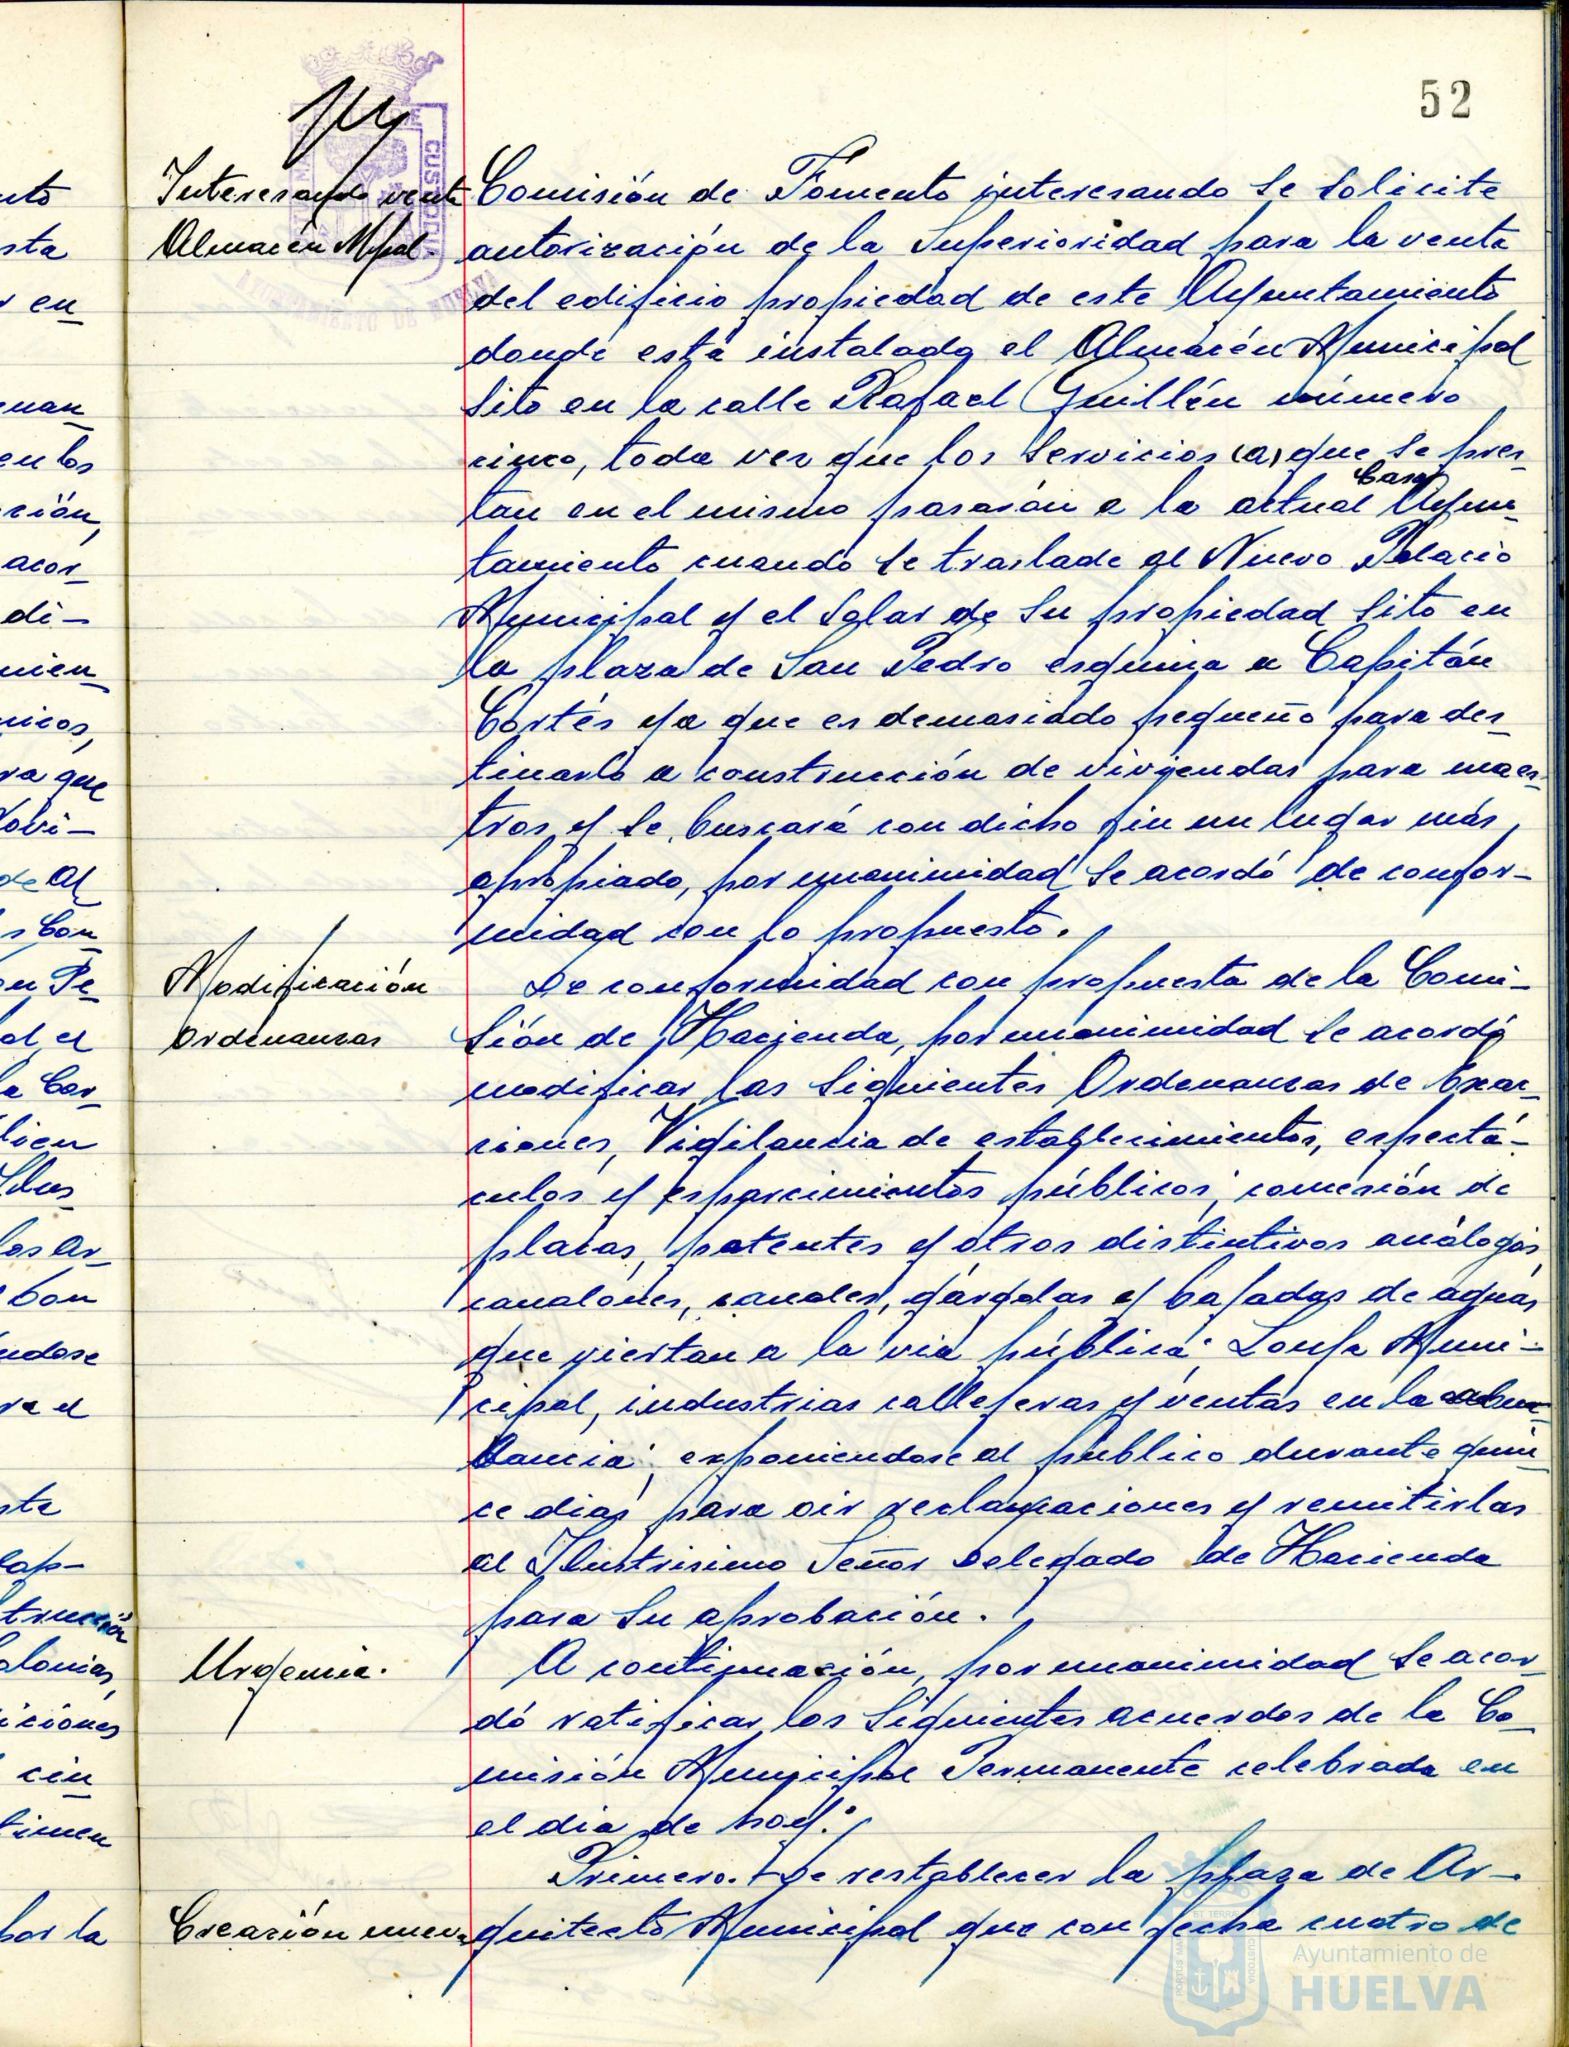 52
Interesando venta
Almacén Mpal.
Comisión de Fomento interesando se solicite
autorización de la Superioridad para la venta
del edificio propiedad de este Ayuntamiento
donde está instalado el Almacén Municipal
sito en la calle Rafael Guillén número
cinco, toda vez que los servicios (a) que se pres-
tan en el mismo pasarán a la actual Casa Ayun-
tamiento cuando se traslade al Nuevo Palacio
Municipal y el solar de su propiedad sito en
la plaza de San Pedro esquina a Capitán
Cortés ya que es demasiado pequeño para des-
tinarlo a construcción de viviendas para maes-
tros y se buscará con dicho fin un lugar más
apropiado, por unanimidad se acordó de confor-
midad con lo propuesto.
Modificación
Ordenanzas
De conformidad con propuesta de la Comi-
sión de Hacienda, por unanimidad se acordó
modificar las siguientes Ordenanzas de Exac-
ciones, Vigilancia de establecimientos, espectá-
culos y esparcimientos públicos; concesión de
placas, patentes y otros distintivos análogos,
canalones, canales, gárgolas y bajadas de aguas
que viertan a la vía pública; Lonja Muni-
cipal, industrias callejeras y ventas en la
exponiendose al público durante quin-
ce dias para oir reclamaciones y remitirlas
al Ilustrisimo Señor Delegado de Hacienda
para su aprobación.
Urgencia.
A continuación, por unanimidad se acor-
dó ratificar los siguientes acuerdos de la Co-
misión Municipal Permanente celebrada en
el dia de hoy:
Primero.- De restablecer la plaza de Ar-
Creación nueva
quitecto Municipal que con fecha cuatro de
nto
sta
r en
uan
en los
ción,
acor-
di-
mien-
nicos,
ra que
de Al
s Con
on Pe-
al el
la Cor-
lien
los Ar-
con
ndose
ra el
sta
cap-
trucción
olonias,
iciones
cin
timen
por la
CUSTODIA
AYUNTAMIENTO DE HUELVA
Ayuntamiento de
HUELVA